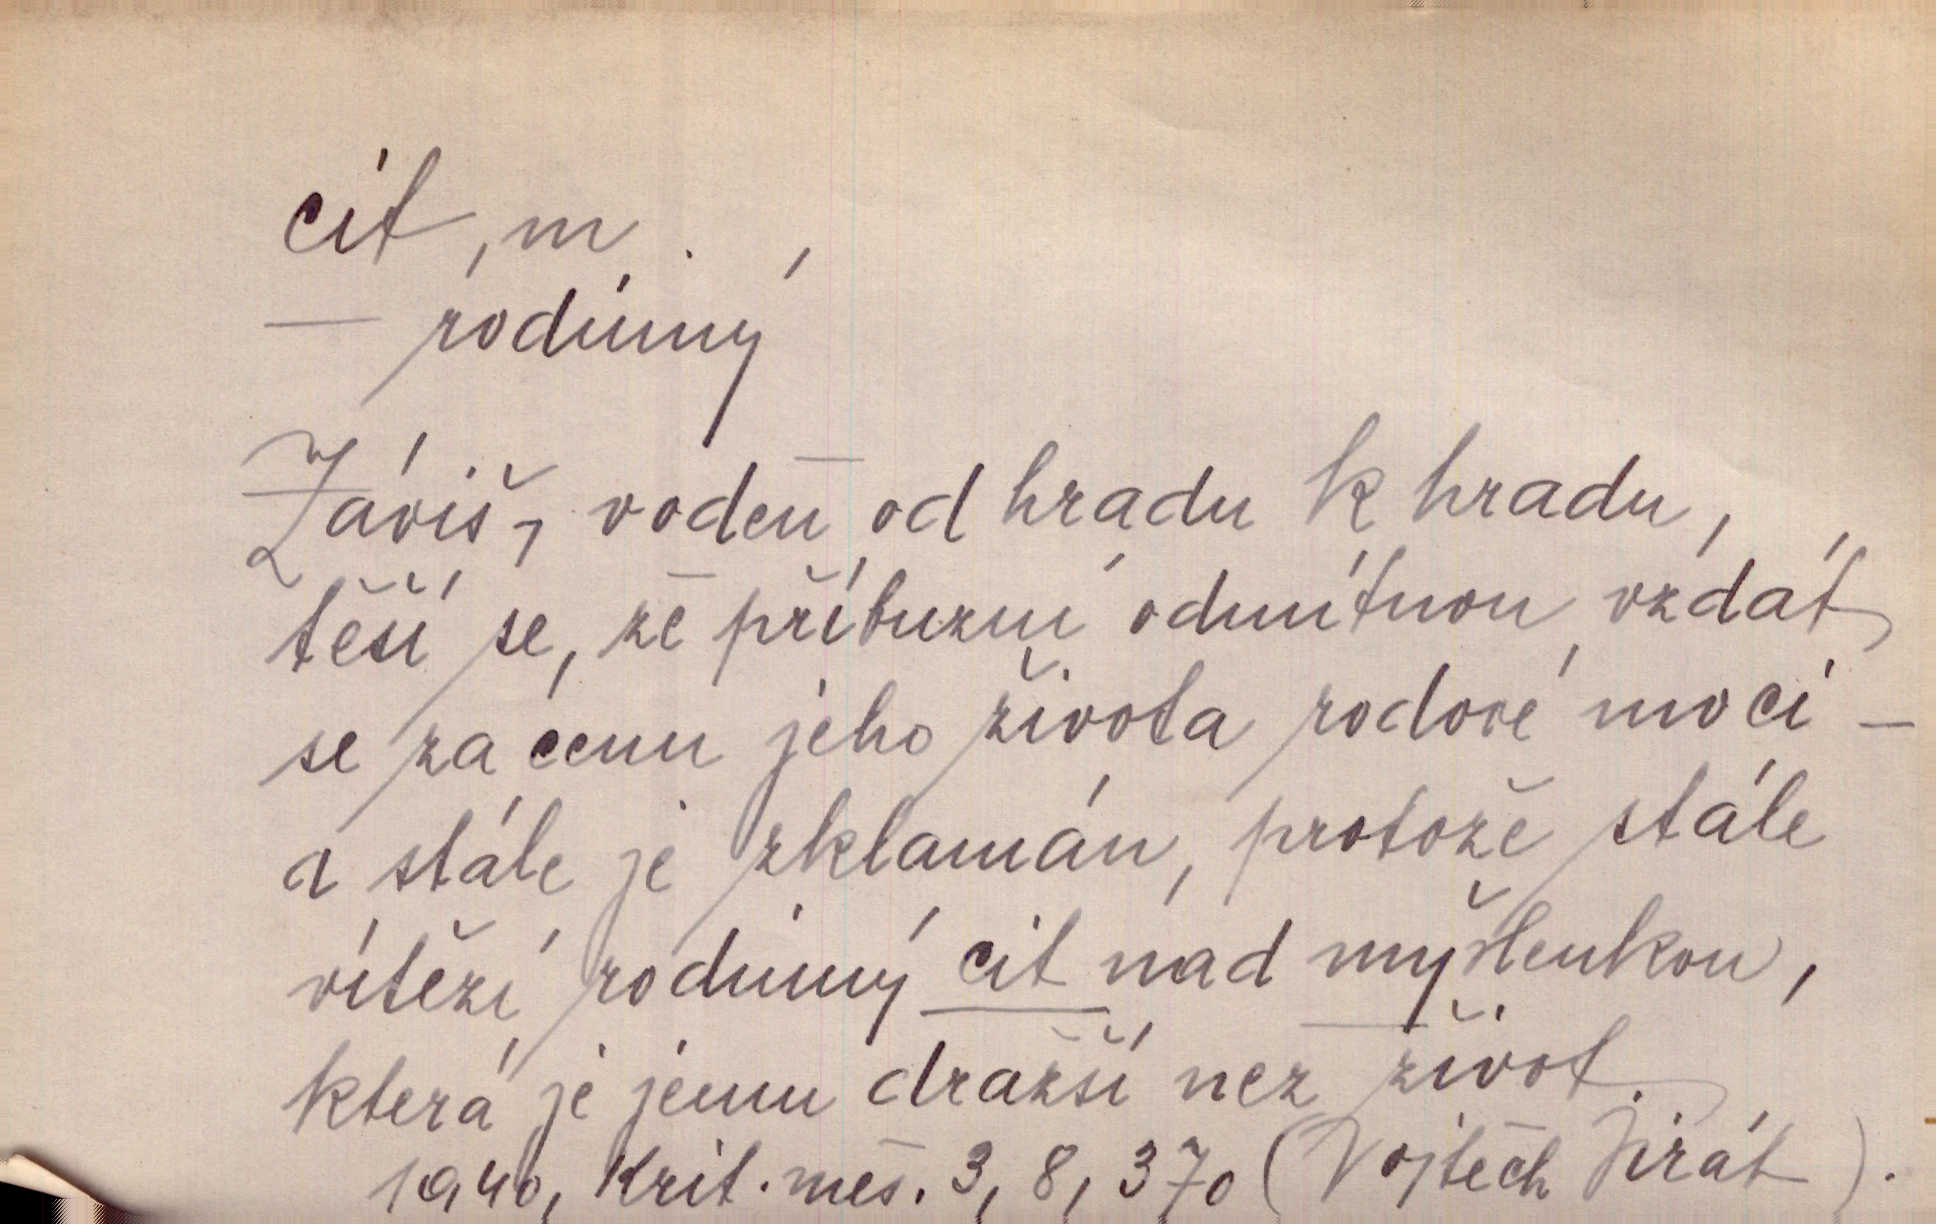 cit, m.
— rodinný
Záviš, voden od hradu k hradu,
těší se, že příbuzní odmítnou vzdát
se za cenu jeho života rodové moci —
a stále je zklamán, protože stále
vítězí rodinný cit nad myšlenkou,
která je jemu dražší než život.
1940, Krit. měs. 3, 8, 370 (Vojtěch Jirát).